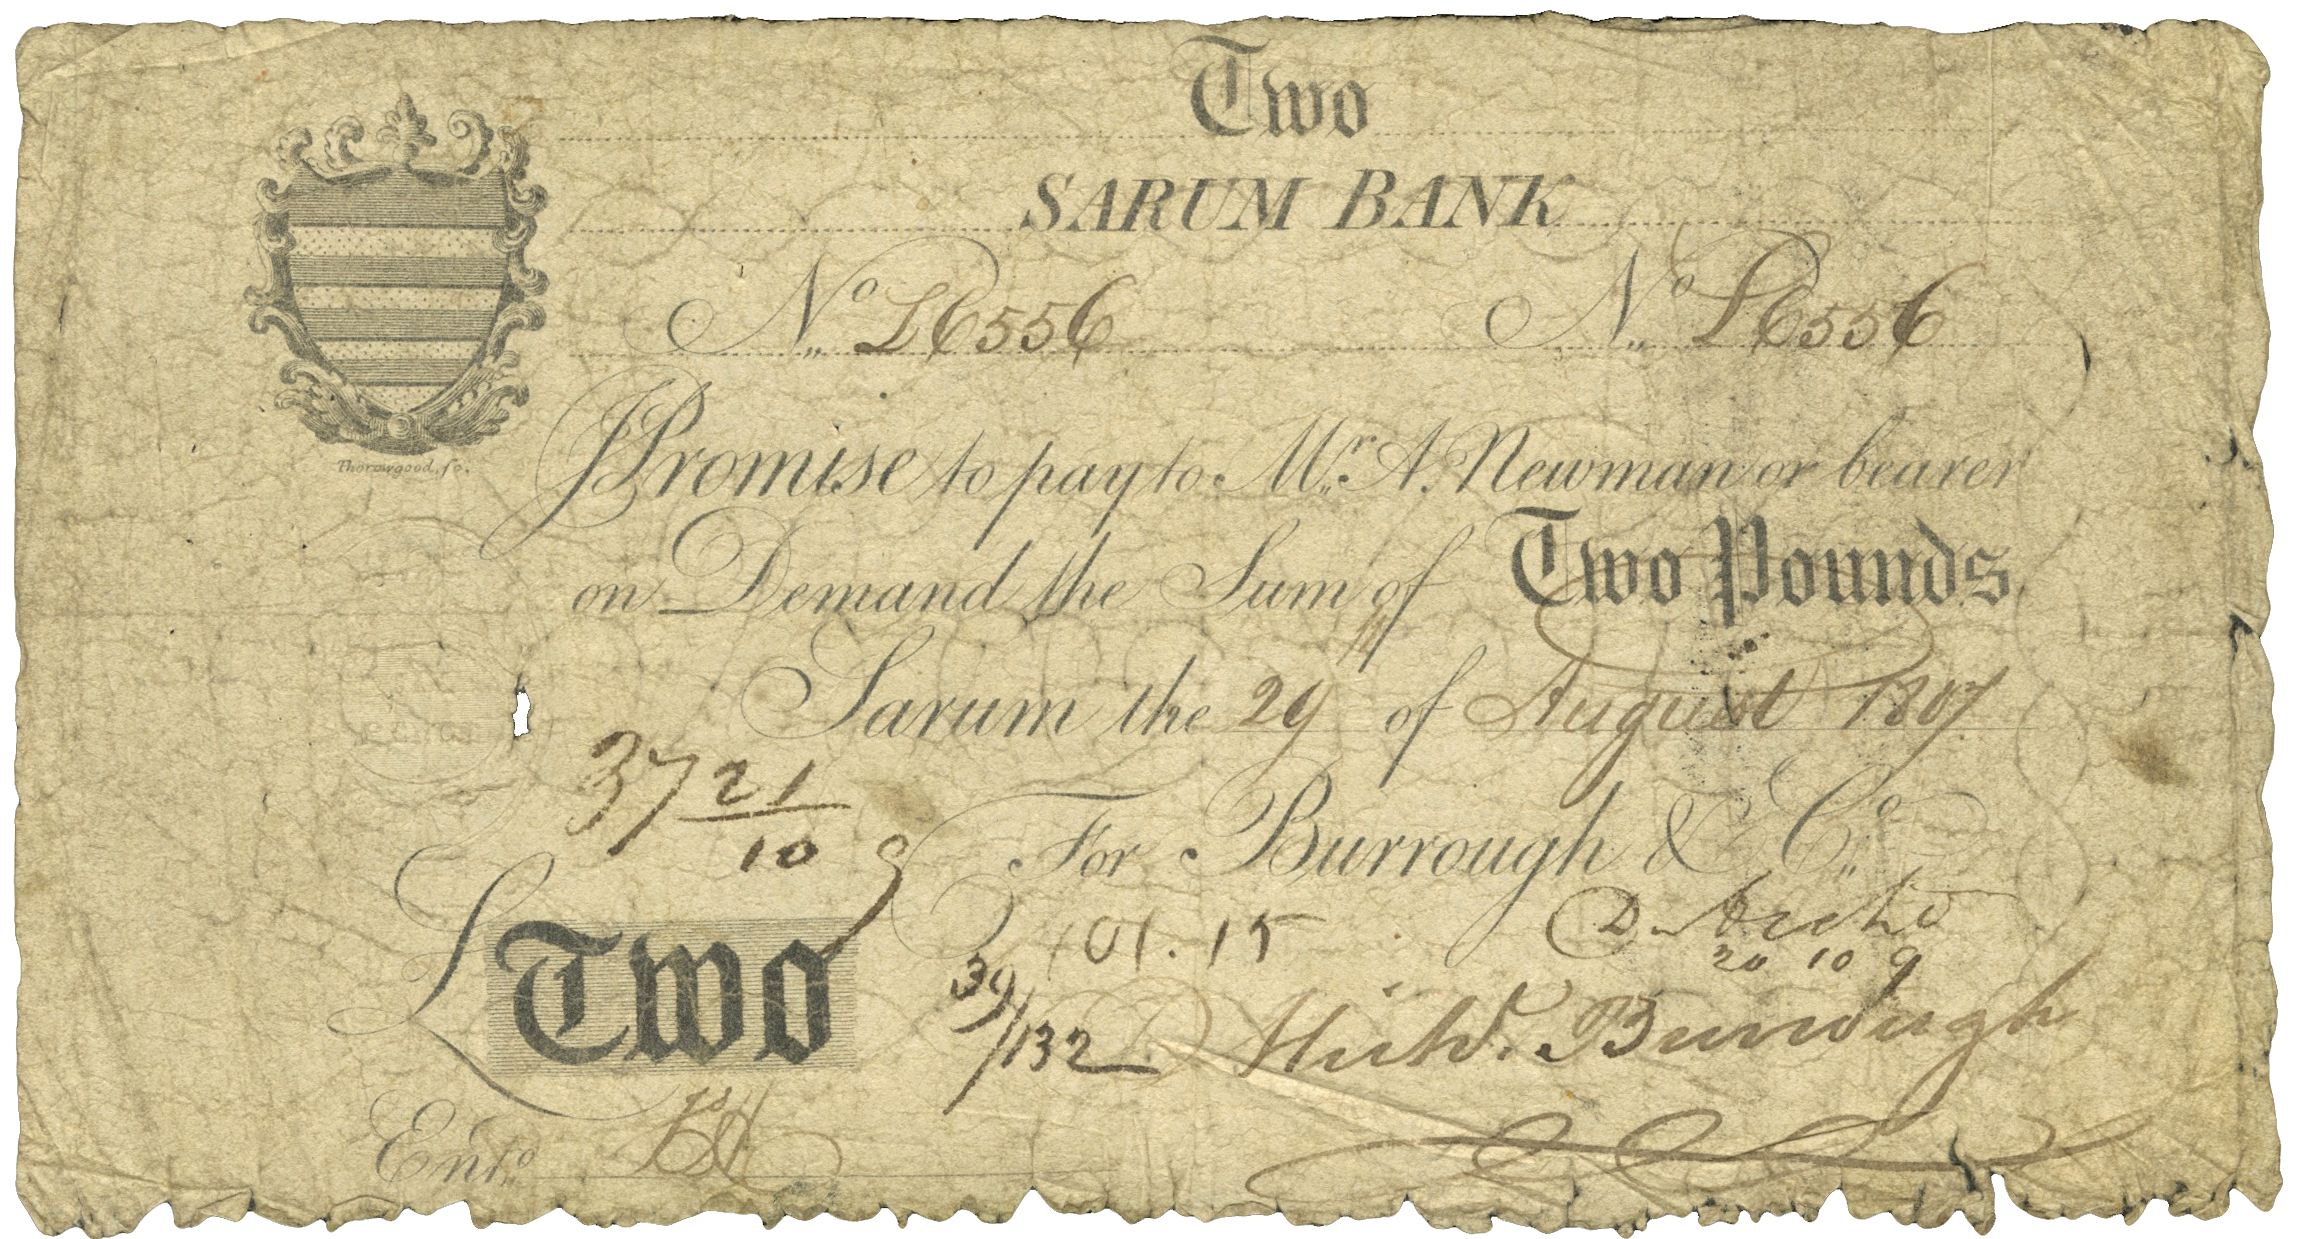 Two
SARUM BANK
No L6556 No L6556
Thorowgood, sc.
I Promise to pay to Mr. A. Newman or bearer
on Demand the Sum of Two Pounds
Sarum the 29 of August 1807
37 21/10 9
For Burrough & Co.
£ Two
101.15
20 10 9
39/132
Burrough
Entd.